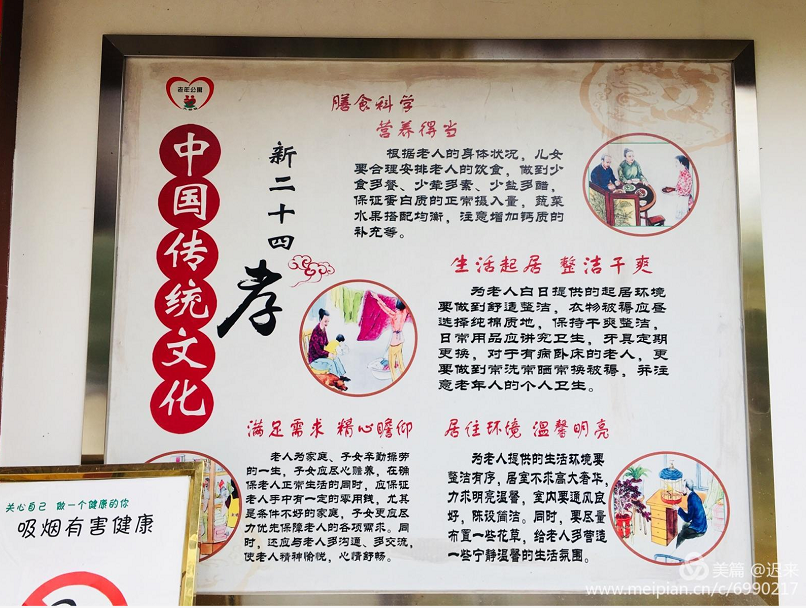 老年公園
中国传统文化
新二十四孝
膳食科学
营养得当
根据老人的身体状况，儿女
要合理安排老人的饮食，做到少
食多餐、少荤多素、少盐多醋，
保证蛋白质的正常摄入量，蔬菜
水果搭配均衡，注意增加钙质的
补充等。
生活起居 整洁干爽
为老人白日提供的起居环境
要做到舒适整洁，衣物被褥应
选择纯棉质地，保持干爽整洁，
日常用品应讲究卫生，牙具定期
更换，对于有病卧床的老人，更
要做到常洗常晒常换被褥，并注
意老年人的个人卫生。
满足需求 精心瞻仰
老人为家庭、子女辛勤操劳
的一生，子女应尽心赡养，在确
保老人正常生活的同时，应保证
老人手中有一定的零用钱，尤其
是条件不好的家庭，子女更应尽
力优先保障老人的各项需求。同
时，还应与老人多沟通、多交流，
使老人精神愉悦，心情舒畅。
居住环境 温馨明亮
为老人提供的生活环境要
整洁有序，居室不求高大奢华，
力求明亮温馨，室内要通风良
好，陈设简洁。同时，要尽量
布置一些花草，给老人多营造
一些宁静温馨的生活氛围。
关心自己 做一个健康的你
吸烟有害健康
美篇 @迟来
www.meipian.cn/c/6990217